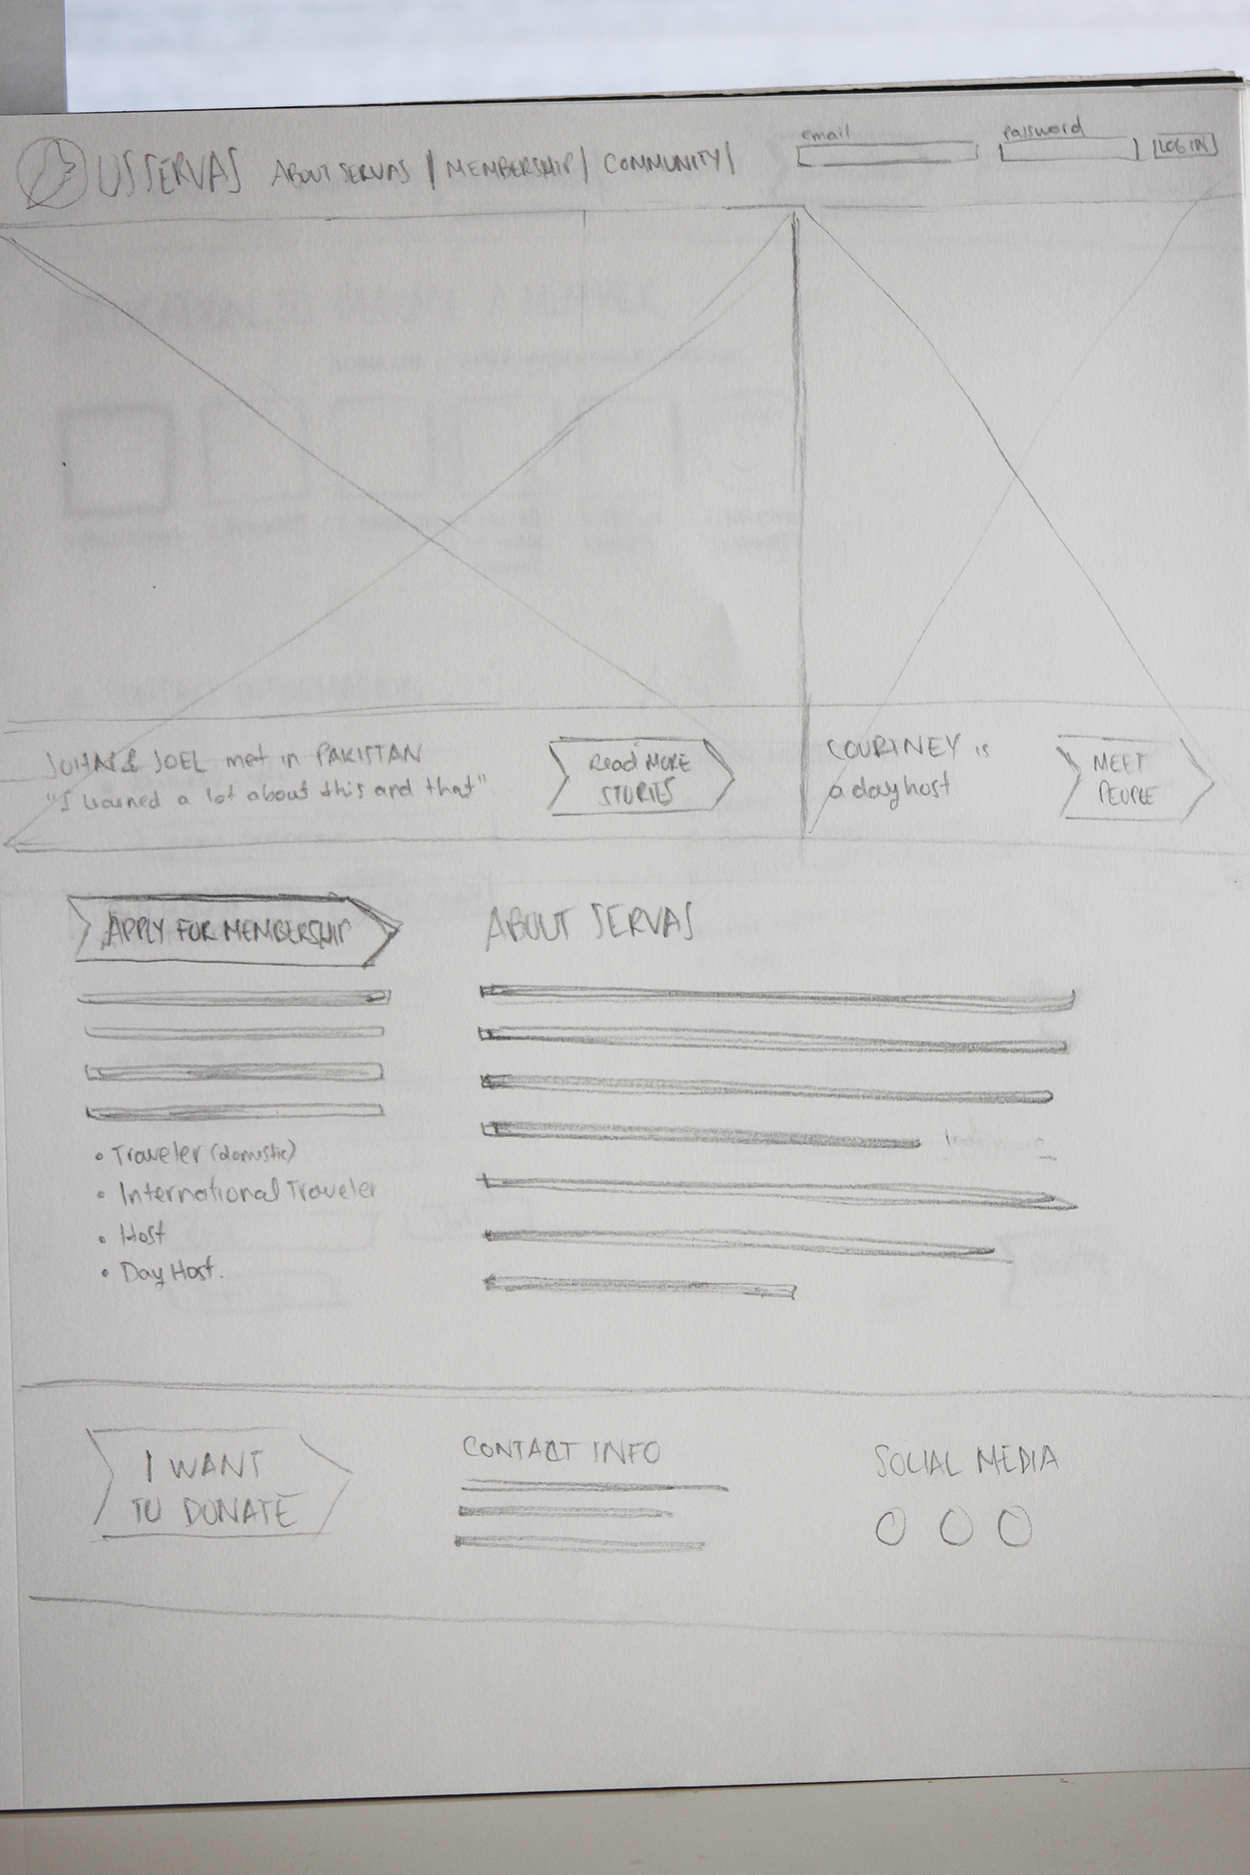 US SERVAS
ABOUT SERVAS | MEMBERSHIP | COMMUNITY |
email
password
LOG IN
JOHN & JOEL met in PAKISTAN
"I learned a lot about this and that"
Read MORE
STORIES
COURTNEY is
a day host
MEET
PEOPLE
APPLY FOR MEMBERSHIP
• Traveler (domestic)
• International Traveler
• Host
• Day Host.
ABOUT SERVAS
I WANT
TO DONATE
CONTACT INFO
SOCIAL MEDIA